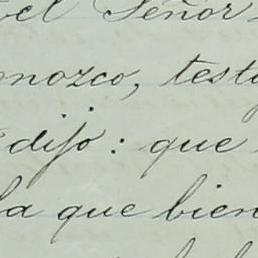 el Señor
nozco, test
dijo: que
la que bien